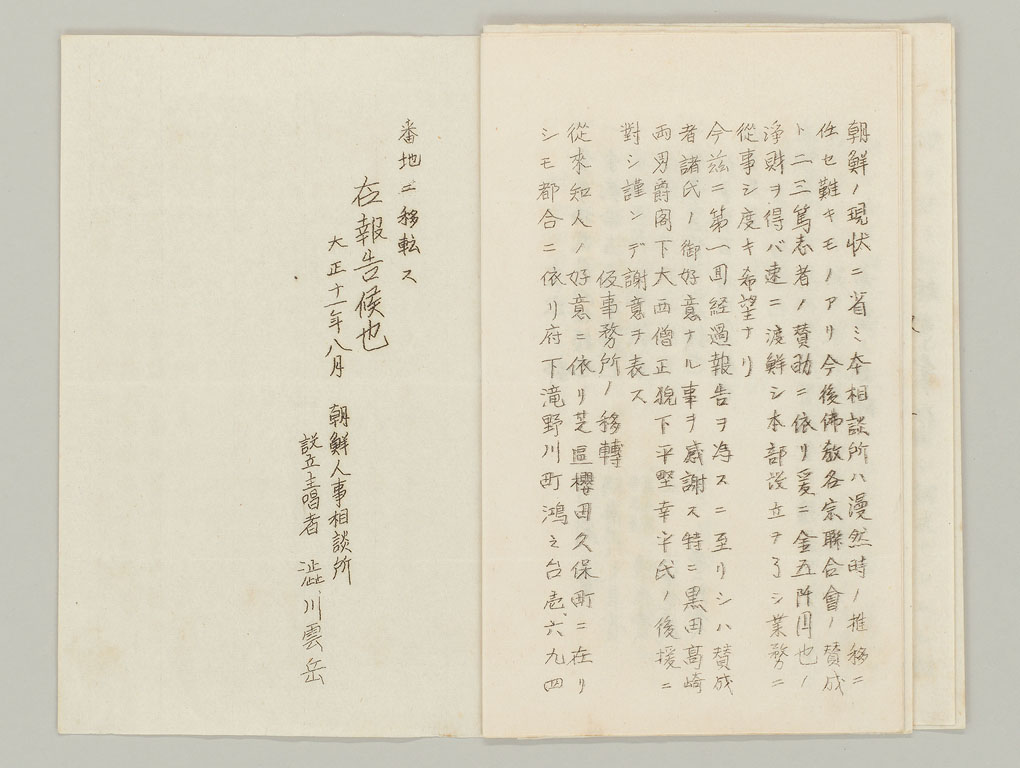 朝鮮ノ現状ニ省ミ本相談所ハ漫然時ノ推移ニ
仕セ難キモノアリ今後佛教各宗聯合會ノ賛成
ト二三篤志者ノ賛助ニ依リ爰ニ金五阡圓也ノ
淨財ヲ得バ速ニ渡鮮シ本部設立ヲ了シ業務ニ
從事シ度キ希望ナリ
今茲ニ第一回経過報告ヲ為スニ至リシハ賛成
者諸氏ノ御好意ナル事ヲ感謝ス特ニ黒田高崎
両男爵閣下大西僧正猊下平塈幸平氏ノ後援ニ
對シ謹ンデ謝意ヲ表ス
仮事務所ノ移轉
從來知人ノ好意ニ依リ芝區櫻田久保町ニ在リ
シモ都合ニ依リ府下滝野川町鴻之台壱、六九四
番地ニ移転ス
右報告候也
大正十一年八月
朝鮮人事相談所
設立主唱者 澁川雲岳